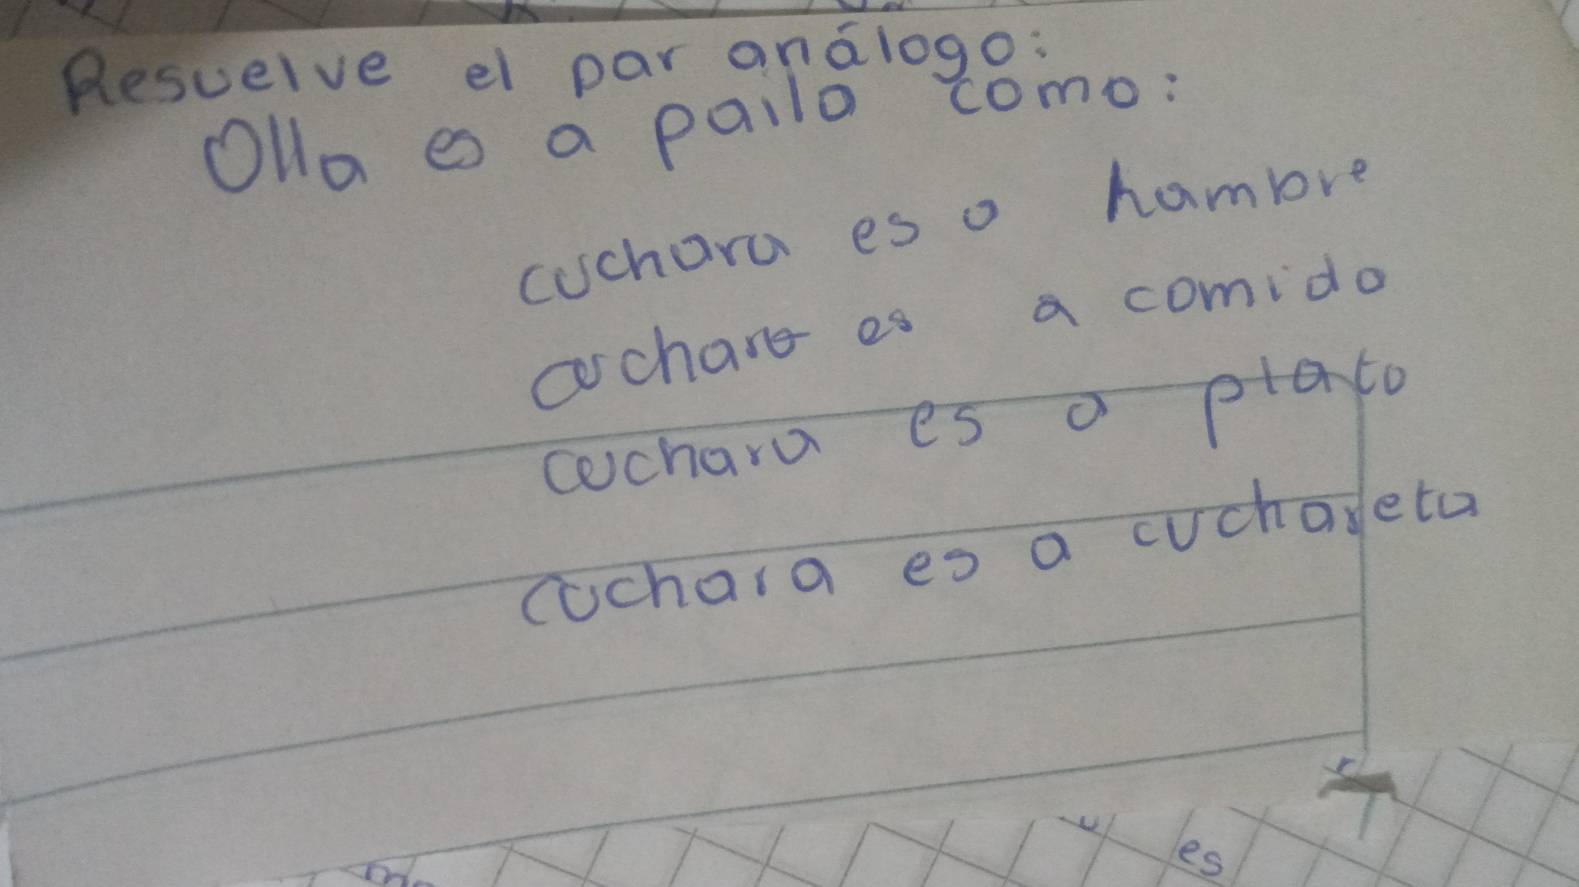 Resuelve el par análogo:
Olla es a paila como:
cuchara es a hambre
cuchara es a comida
cuchara es a plato
cuchara es a cuchareta
es